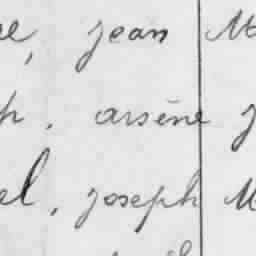 , jean M
. arsène
el, joseph M